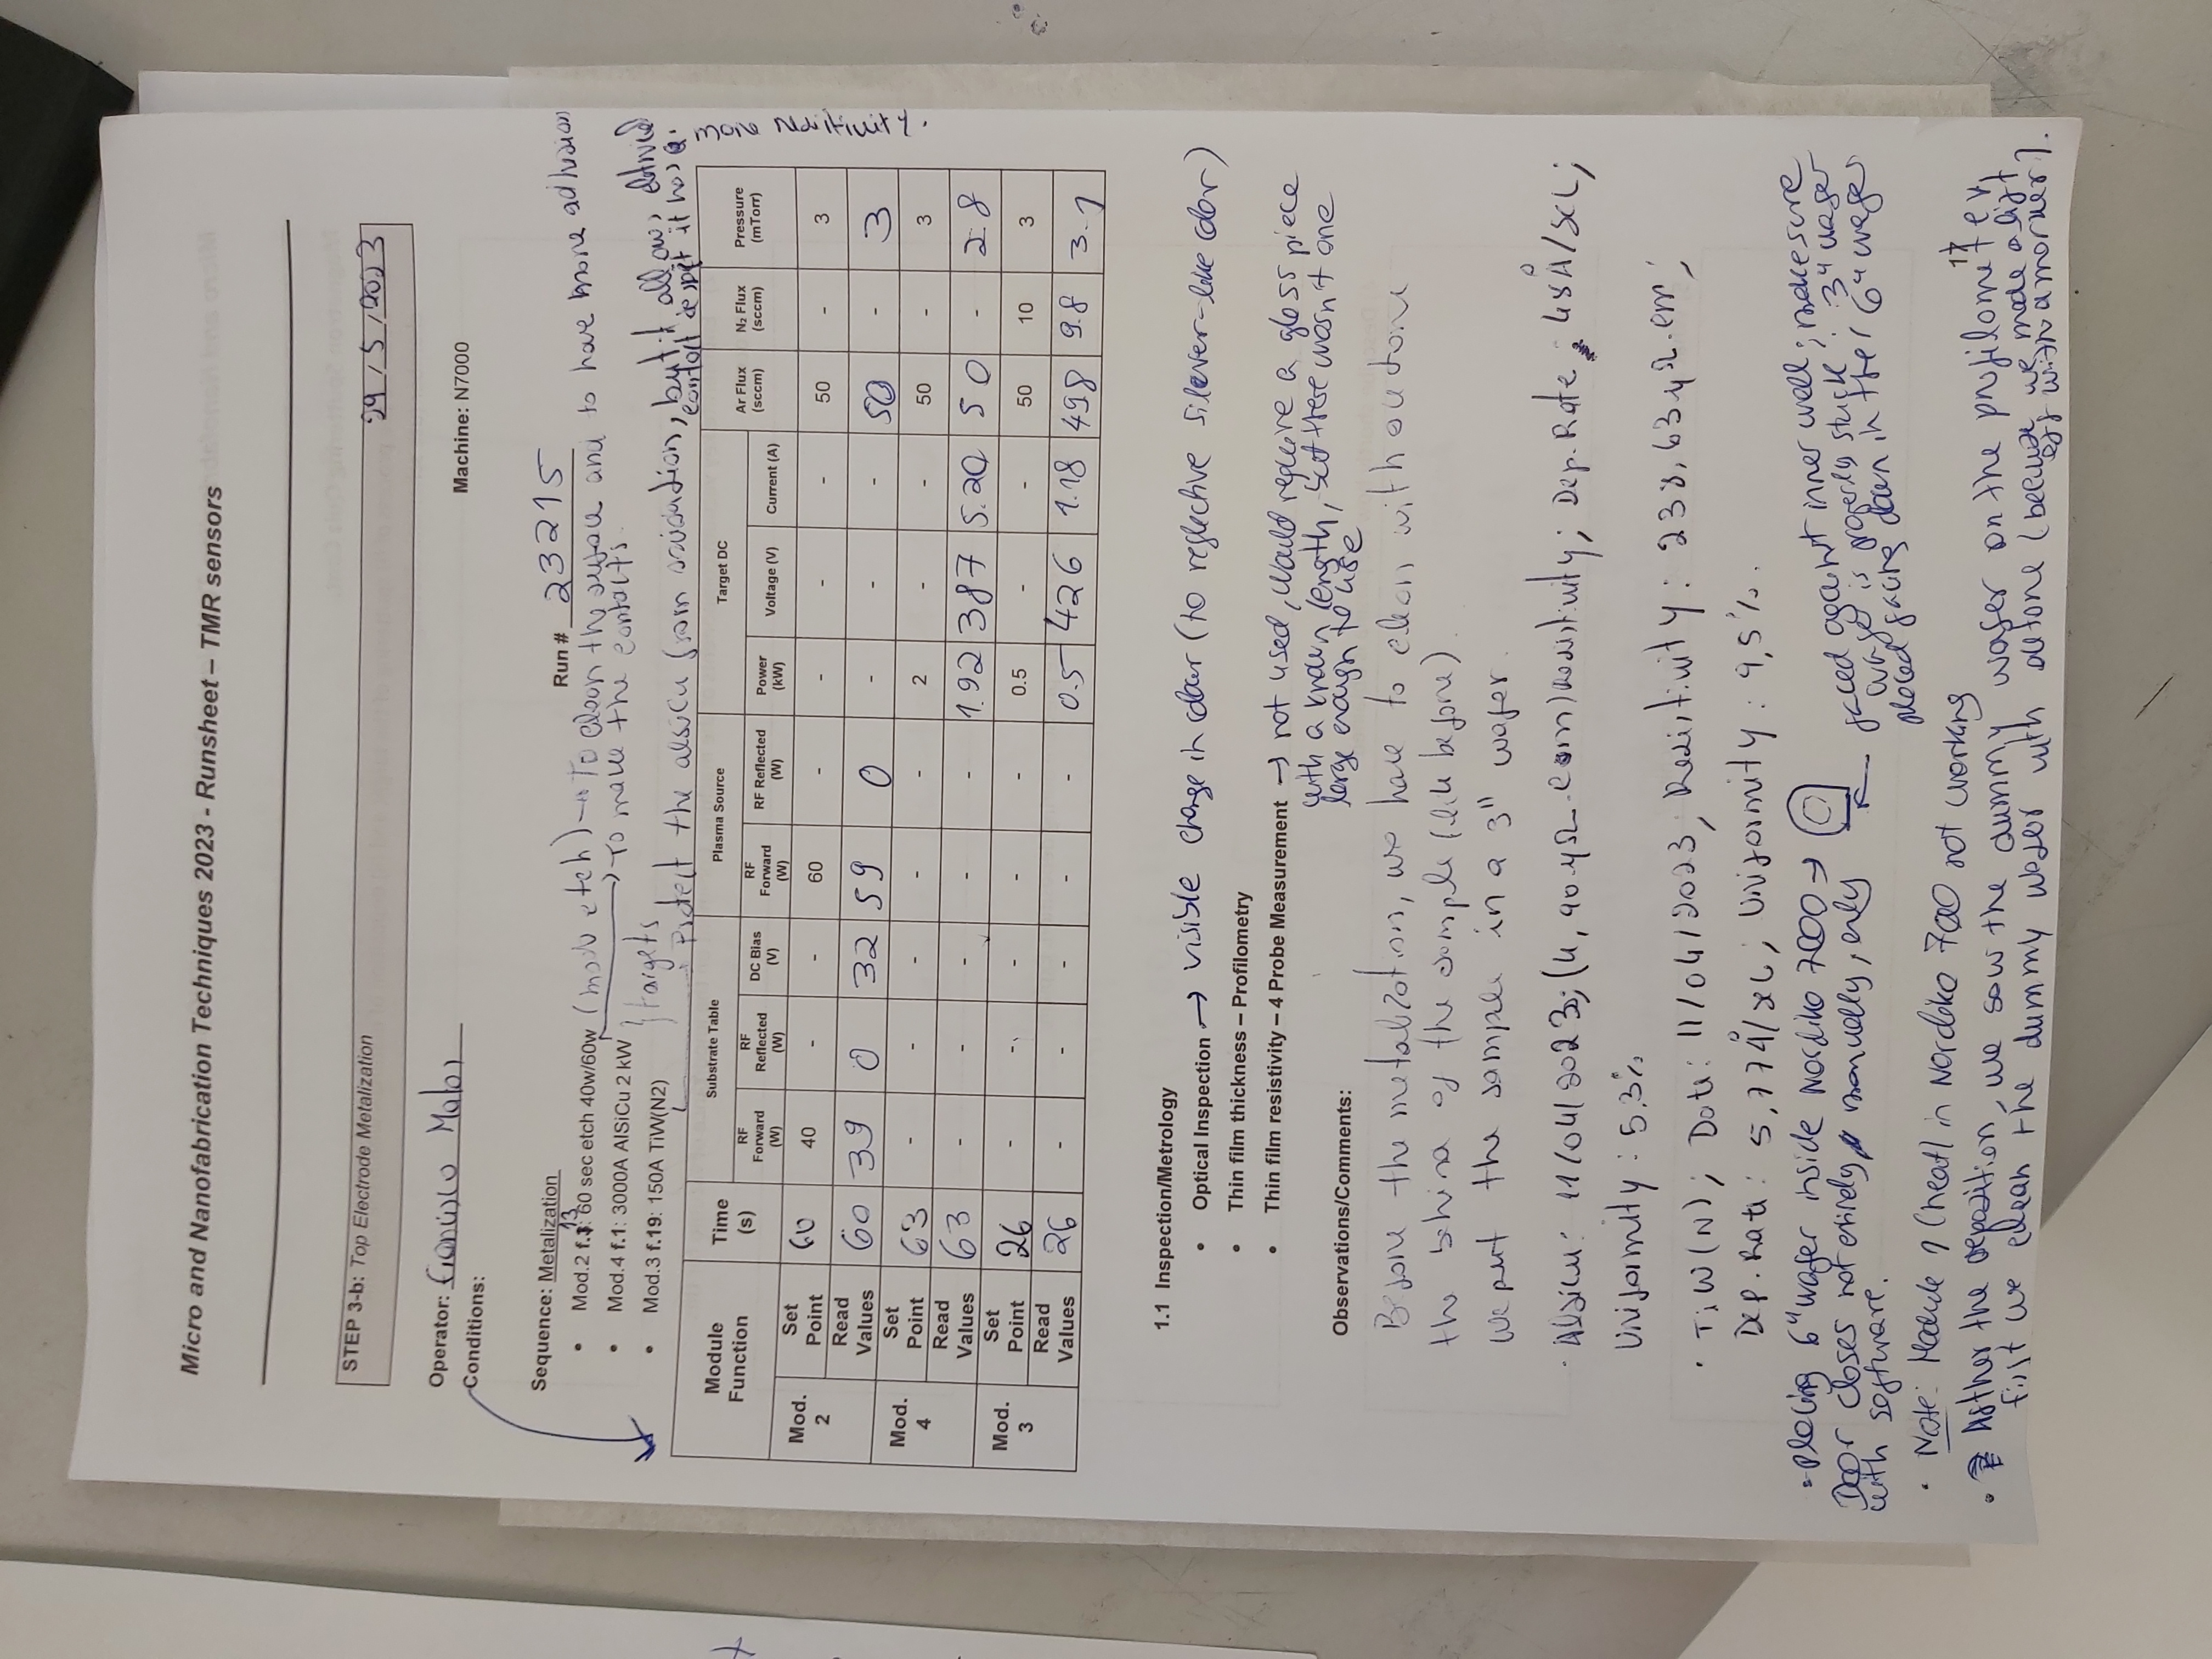 Micro and Nanofabrication Techniques 2023 - Runsheet – TMR sensors
STEP 3-b: Top Electrode Metalization
29/5/2023
Operator: Francisco Matos
Machine: N7000
Conditions:
Sequence: Metalization
Run # 23215
• Mod.2 f.13: 60 sec etch 40w/60w (mod etch) → To clean the surface and to have more adhesion
• Mod.4 f.1: 3000A AlSiCu 2 kW → To make the contacts.
• Mod.3 f.19: 150A TiW(N2)
} targets
Protect the alsicu from oxidation, but it allows eletrical
contact despit it has a
more resistivity.
Module Function Time (s) Substrate Table Plasma Source Target DC Ar Flux (sccm) N₂ Flux (sccm) Pressure (mTorr)
RF Forward (W) RF Reflected (W) DC Bias (V) RF Forward (W) RF Reflected (W) Power (kW) Voltage (V) Current (A)
Mod. 2 Set Point 60 40 - - 60 - - - - 50 - 3
Read Values 60 39 0 32 59 0 - - - 50 - 3
Mod. 4 Set Point 63 - - - - - 2 - - 50 - 3
Read Values 63 - - - - - 1.92 387 5.20 50 - 2.8
Mod. 3 Set Point 26 - - - - - 0.5 - - 50 10 3
Read Values 26 - - - - - 0.5 426 1.18 498 9.8 3.1
1.1 Inspection/Metrology
• Optical Inspection → visible change in colour (to reglective silever-like color)
• Thin film thickness – Profilometry
• Thin film resistivity – 4 Probe Measurement → not used, would require a glass piece
with a known length, but there wasn't one
large enough to use
Observations/Comments:
Before the metalization, we have to clean with acetone
the behind of the sample (like before).
We put the sample in a 3" wafer.
· Alsicu: 11/04/2023; (4,90 μΩ.cm) Resistivity; Dep. Rate: 48Å/sec;
Uniformity: 5.3%
· TiW(N); Date: 11/04/2023; Resistivity: 238,63 μΩ.cm;
Dep. Rate: 5,77Å/sec; Uniformity: 9,5%.
· Placing 6" wafer inside Nordiko 7000 →
Door closes not entirely manually, only
with software.
faced against inner wall; make sure
wafer is properly stuck. 3" wafer
placed facing down in the 6" wafer
· Note: Module 1 (heat) in Nordiko 700 not working
· Afther the deposition, we saw the dummy wafer on the profilometer,
first we clean the dummy wafer with acetone (because we made a lift
off with a marker).
17